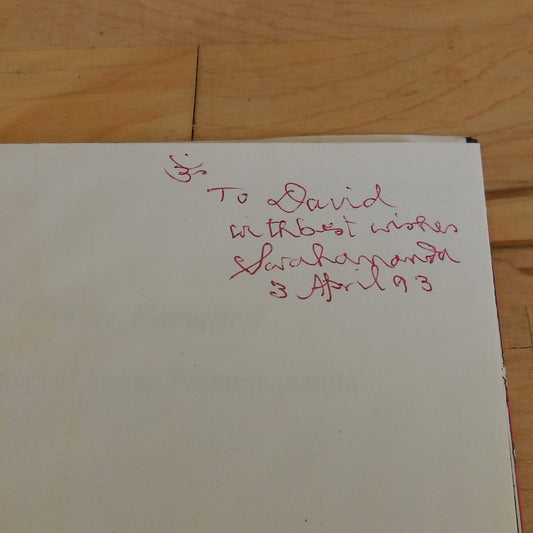 ॐ
To David
with best wishes
Swahananda
3 April 93
Go Forward
Letters of Swami Premeshananda